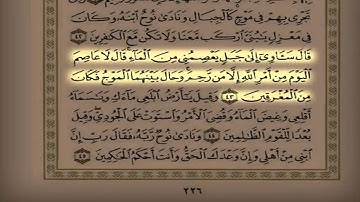 تَجْرِى بِهِمْ فِى مَوْجٍ كَٱلْجِبَالِ وَنَادَىٰ نُوحٌ ٱبْنَهُۥ وَكَانَ
فِى مَعْزِلٍ يَٰبُنَىَّ ٱرْكَب مَّعَنَا وَلَا تَكُن مَّعَ ٱلْكَٰفِرِينَ ٤٢
قَالَ سَـَٔاوِىٓ إِلَىٰ جَبَلٍ يَعْصِمُنِى مِنَ ٱلْمَآءِ قَالَ لَا عَاصِمَ
ٱلْيَوْمَ مِنْ أَمْرِ ٱللَّهِ إِلَّا مَن رَّحِمَ وَحَالَ بَيْنَهُمَا ٱلْمَوْجُ فَكَانَ
مِنَ ٱلْمُغْرَقِينَ ٤٣ وَقِيلَ يَٰٓأَرْضُ ٱبْلَعِى مَآءَكِ وَيَٰسَمَآءُ
أَقْلِعِى وَغِيضَ ٱلْمَآءُ وَقُضِىَ ٱلْأَمْرُ وَٱسْتَوَتْ عَلَى ٱلْجُودِىِّ وَقِيلَ
بُعْدًا لِّلْقَوْمِ ٱلظَّٰلِمِينَ ٤٤ وَنَادَىٰ نُوحٌ رَّبَّهُۥ فَقَالَ رَبِّ إِنَّ
ٱبْنِى مِنْ أَهْلِى وَإِنَّ وَعْدَكَ ٱلْحَقُّ وَأَنتَ أَحْكَمُ ٱلْحَٰكِمِينَ ٤٥
٢٢٦